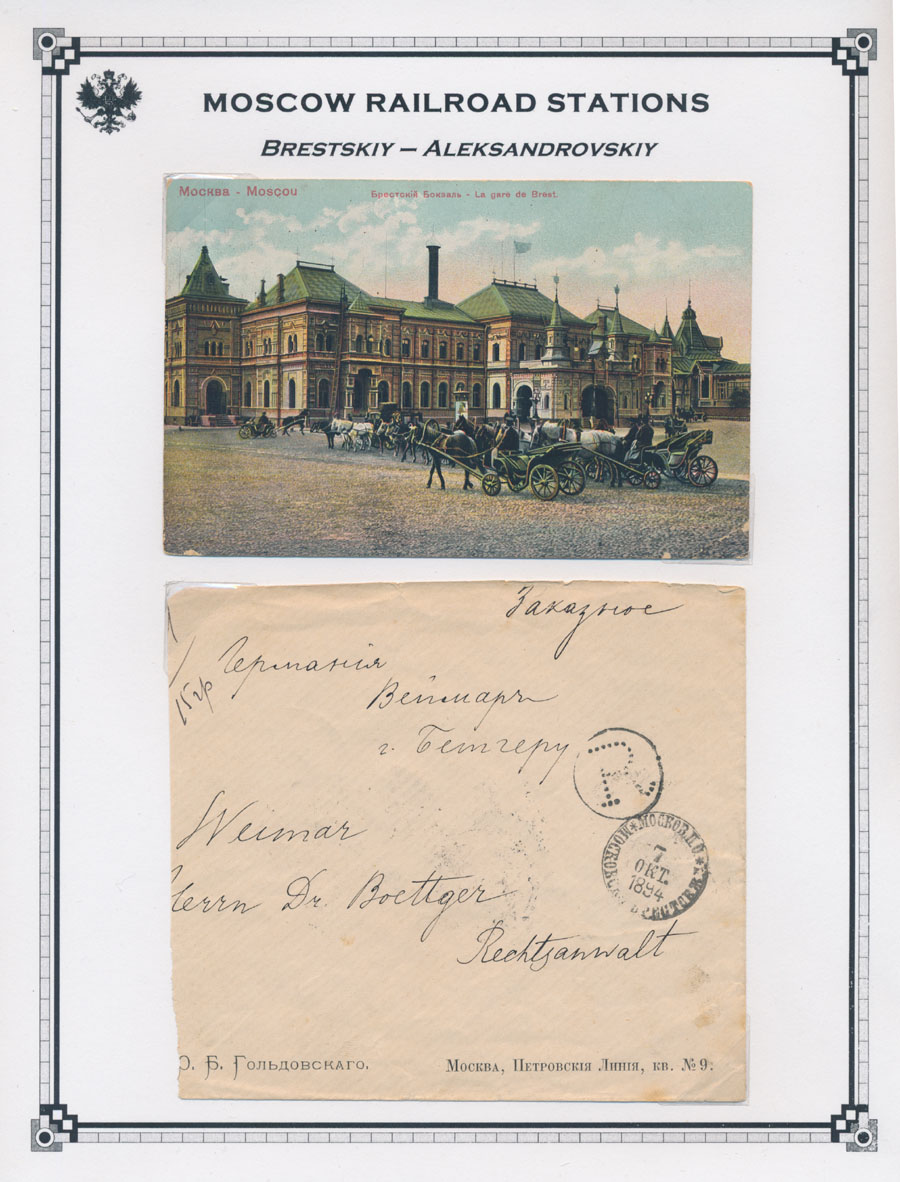 MOSCOW RAILROAD STATIONS
BRESTSKIY – ALEKSANDROVSKIY
Москва - Moscou
Брестскій Вокзалъ - La gare de Brest.
Заказное
15 гр
Германія
Веймаръ
г. Бетгеру
R
МОСКОВ. П.О.
7
ОКТ.
1894
Weimar
Herrn Dr. Boettger
Rechtsanwalt
О. Б. Гольдовскаго.
Москва, Петровскія Линіи, кв. № 9.